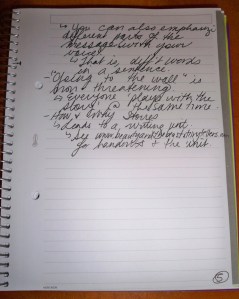 ↳ You can also emphasize
different parts of the
message with your
voice.
↳ That is, diff't words
in a sentence.
"to the wall" is
non threatening.
↳ Everyone plays with the
story @ the same time.
How & Why Stories
↳ Leads to a writing unit.
↳ See www.
for handouts & the unit.
5